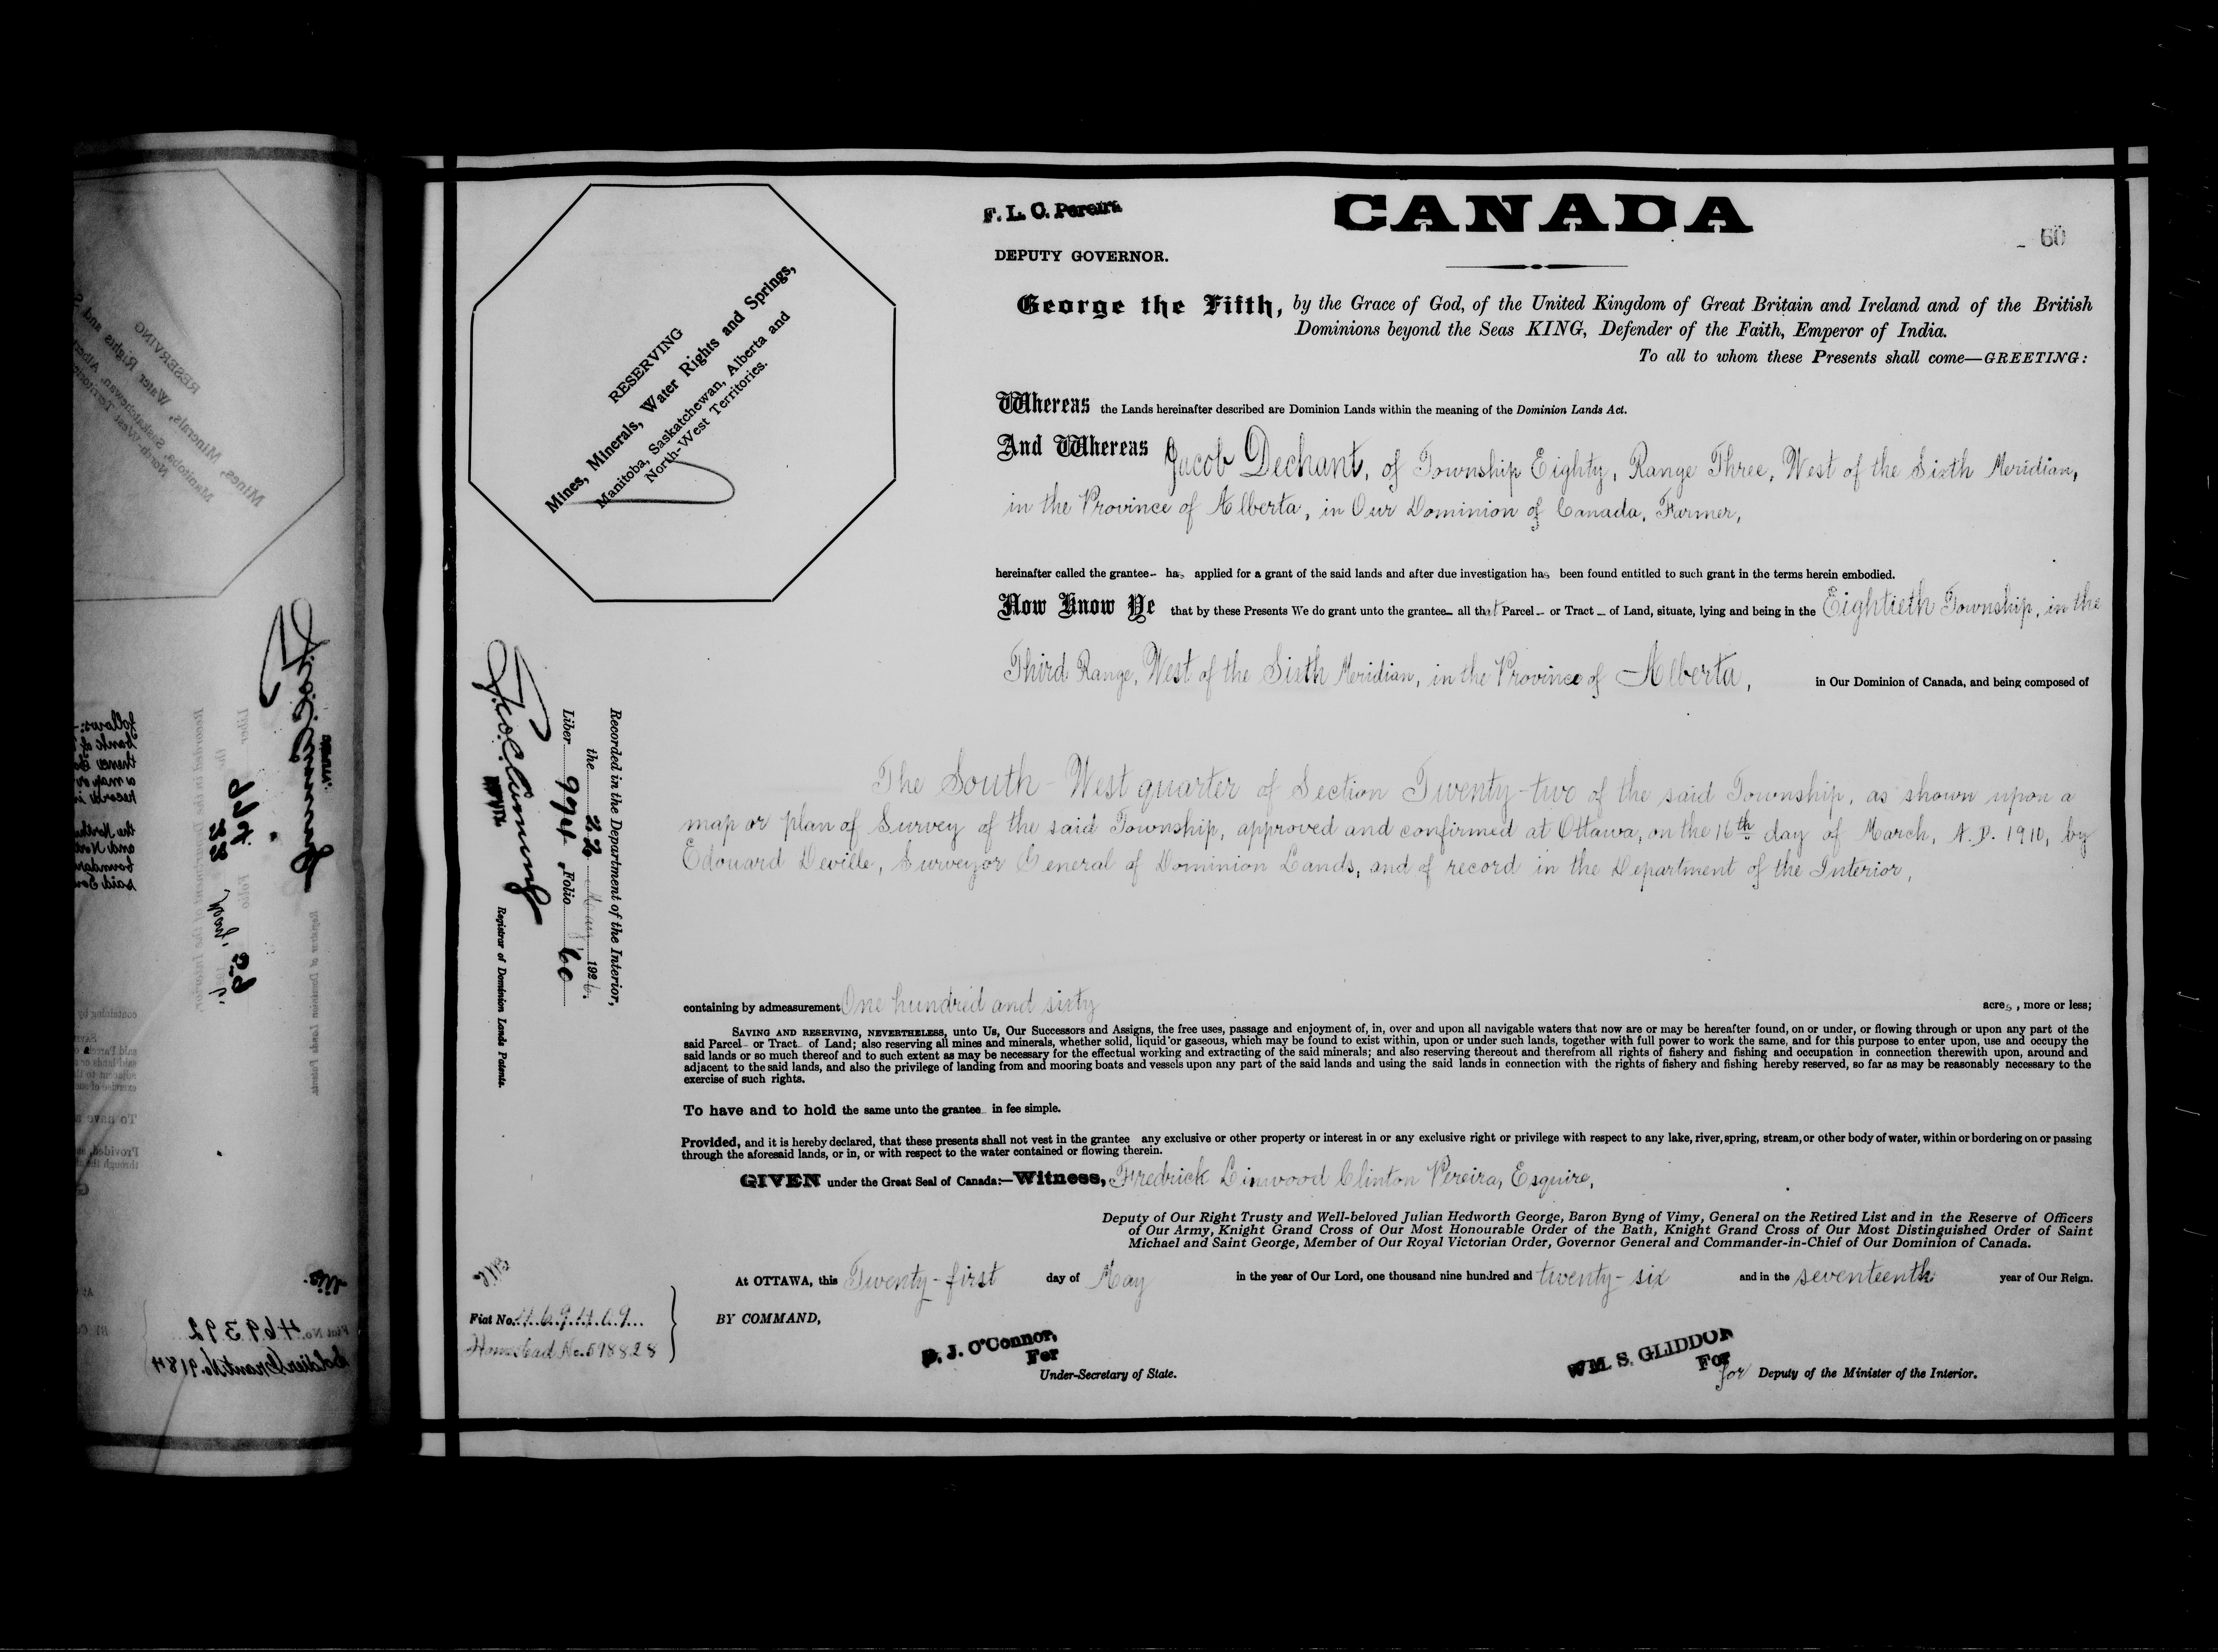 F. L. C. Pereira
CANADA
60
DEPUTY GOVERNOR.
George the Fifth, by the Grace of God, of the United Kingdom of Great Britain and Ireland and of the British
Dominions beyond the Seas KING, Defender of the Faith, Emperor of India.
To all to whom these Presents shall come—GREETING:
RESERVING
Mines, Minerals, Water Rights and Springs,
Manitoba, Saskatchewan, Alberta and
North-West Territories.
Whereas the Lands hereinafter described are Dominion Lands within the meaning of the Dominion Lands Act.
And Whereas Jacob Dechant, of Township Eighty, Range Three, West of the Sixth Meridian,
in the Province of Alberta, in Our Dominion of Canada, Farmer,
hereinafter called the grantee has applied for a grant of the said lands and after due investigation has been found entitled to such grant in the terms herein embodied.
Now Know Ye that by these Presents We do grant unto the grantee all that Parcel or Tract of Land, situate, lying and being in the Eightieth Township, in the
Third Range, West of the Sixth Meridian, in the Province of Alberta, in Our Dominion of Canada, and being composed of
The South-West quarter of Section Twenty-two of the said Township, as shown upon a
map or plan of Survey of the said Township, approved and confirmed at Ottawa, on the 16th day of March, A.D. 1910, by
Edouard Deville, Surveyor General of Dominion Lands, and of record in the Department of the Interior,
Recorded in the Department of the Interior,
the 22 May 1926.
Liber 994 Folio 60
Geo. C. Cumming
Registrar of Dominion Lands Patents.
containing by admeasurement One hundred and sixty acres, more or less;
SAVING AND RESERVING, NEVERTHELESS, unto Us, Our Successors and Assigns, the free uses, passage and enjoyment of, in, over and upon all navigable waters that now are or may be hereafter found, on or under, or flowing through or upon any part of the
said Parcel or Tract of Land; also reserving all mines and minerals, whether solid, liquid or gaseous, which may be found to exist within, upon or under such lands, together with full power to work the same, and for this purpose to enter upon, use and occupy the
said lands or so much thereof and to such extent as may be necessary for the effectual working and extracting of the said minerals; and also reserving thereout and therefrom all rights of fishery and fishing and occupation in connection therewith upon, around and
adjacent to the said lands, and also the privilege of landing from and mooring boats and vessels upon any part of the said lands and using the said lands in connection with the rights of fishery and fishing hereby reserved, so far as may be reasonably necessary to the
exercise of such rights.
To have and to hold the same unto the grantee in fee simple.
Provided, and it is hereby declared, that these presents shall not vest in the grantee any exclusive or other property or interest in or any exclusive right or privilege with respect to any lake, river, spring, stream, or other body of water, within or bordering on or passing
through the aforesaid lands, or in, or with respect to the water contained or flowing therein.
GIVEN under the Great Seal of Canada:—Witness, Fredrick Linwood Clinton Pereira, Esquire,
Deputy of Our Right Trusty and Well-beloved Julian Hedworth George, Baron Byng of Vimy, General on the Retired List and in the Reserve of Officers
of Our Army, Knight Grand Cross of Our Most Honourable Order of the Bath, Knight Grand Cross of Our Most Distinguished Order of Saint
Michael and Saint George, Member of Our Royal Victorian Order, Governor General and Commander-in-Chief of Our Dominion of Canada.
At OTTAWA, this Twenty-first day of May in the year of Our Lord, one thousand nine hundred and twenty-six and in the seventeenth year of Our Reign.
Fiat No. 469409
Homestead No. 598828
BY COMMAND,
D. J. O'Connor,
For
Under-Secretary of State.
WM. S. GLIDDON
For
for Deputy of the Minister of the Interior.
Fiat No. 469392
Soldier Grant No. 9184